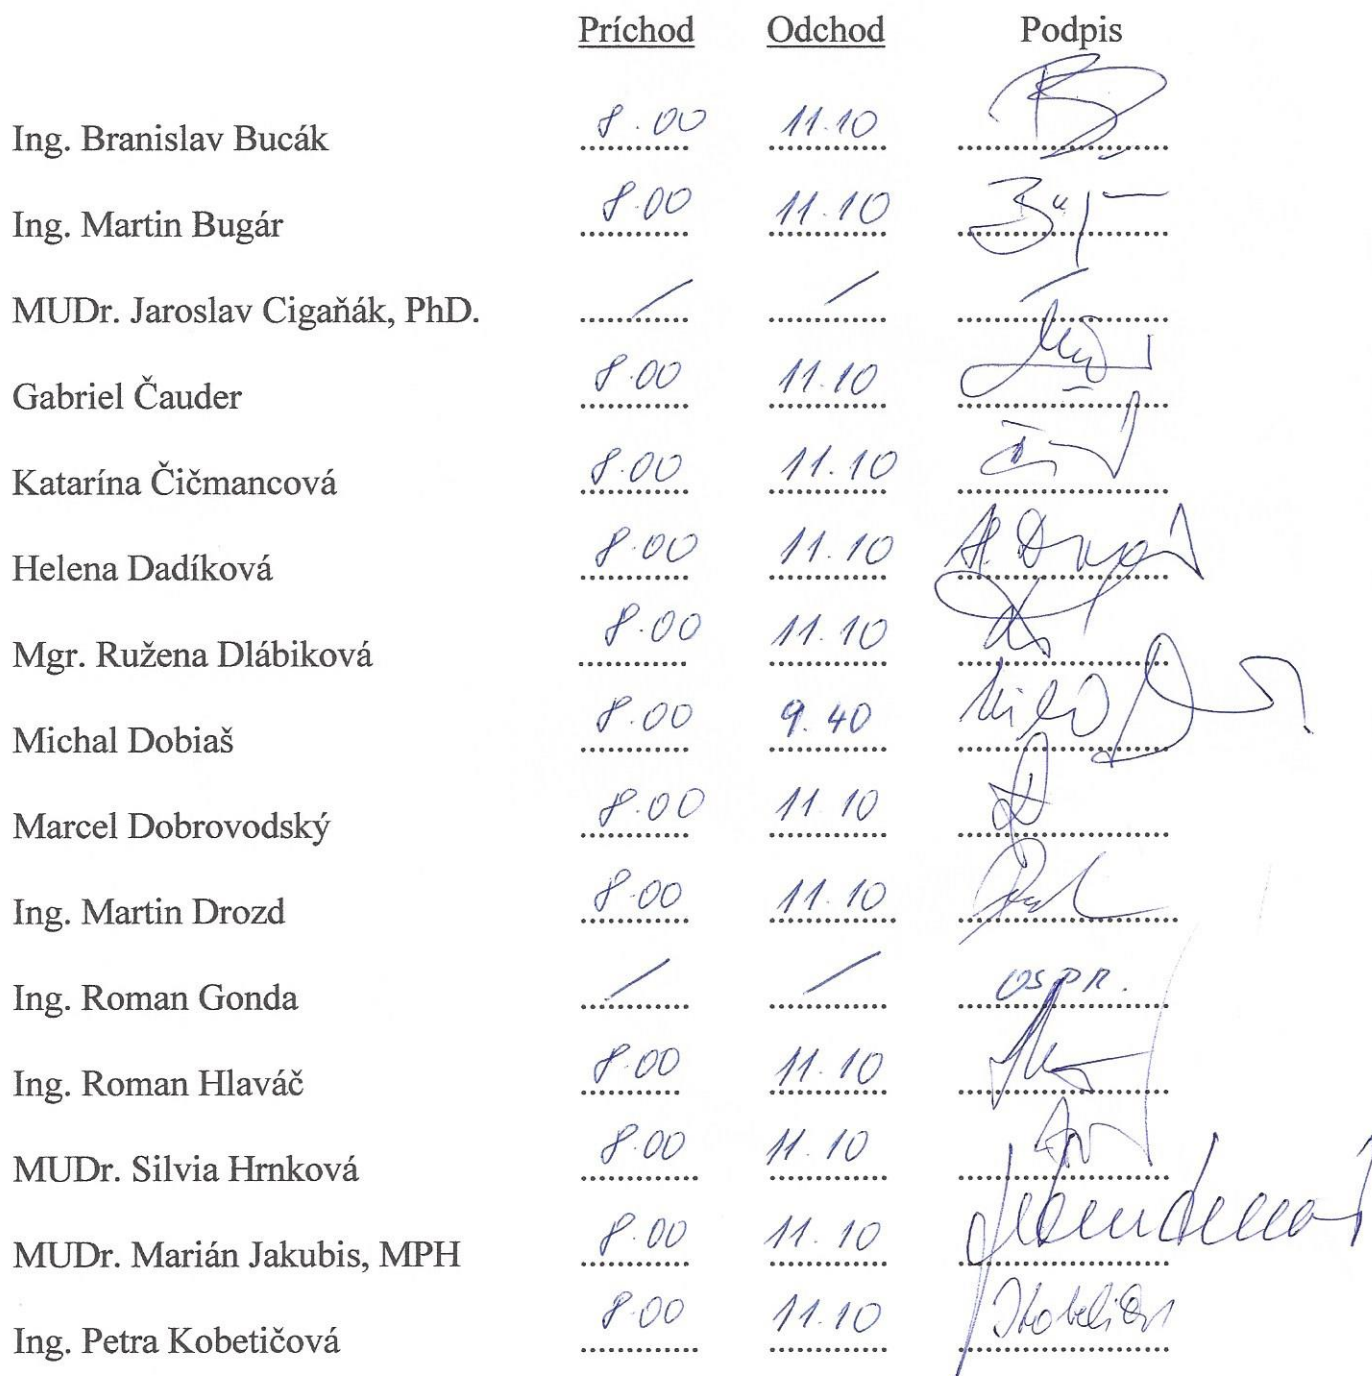 Príchod Odchod Podpis
Ing. Branislav Bucák 8.00 11.10
Ing. Martin Bugár 8.00 11.10
MUDr. Jaroslav Cigaňák, PhD. / /
Gabriel Čauder 8.00 11.10
Katarína Čičmancová 8.00 11.10
Helena Dadíková 8.00 11.10
Mgr. Ružena Dlábiková 8.00 11.10
Michal Dobiaš 8.00 9.40
Marcel Dobrovodský 8.00 11.10
Ing. Martin Drozd 8.00 11.10
Ing. Roman Gonda / / OSPR.
Ing. Roman Hlaváč 8.00 11.10
MUDr. Silvia Hrnková 8.00 11.10
MUDr. Marián Jakubis, MPH 8.00 11.10
Ing. Petra Kobetičová 8.00 11.10